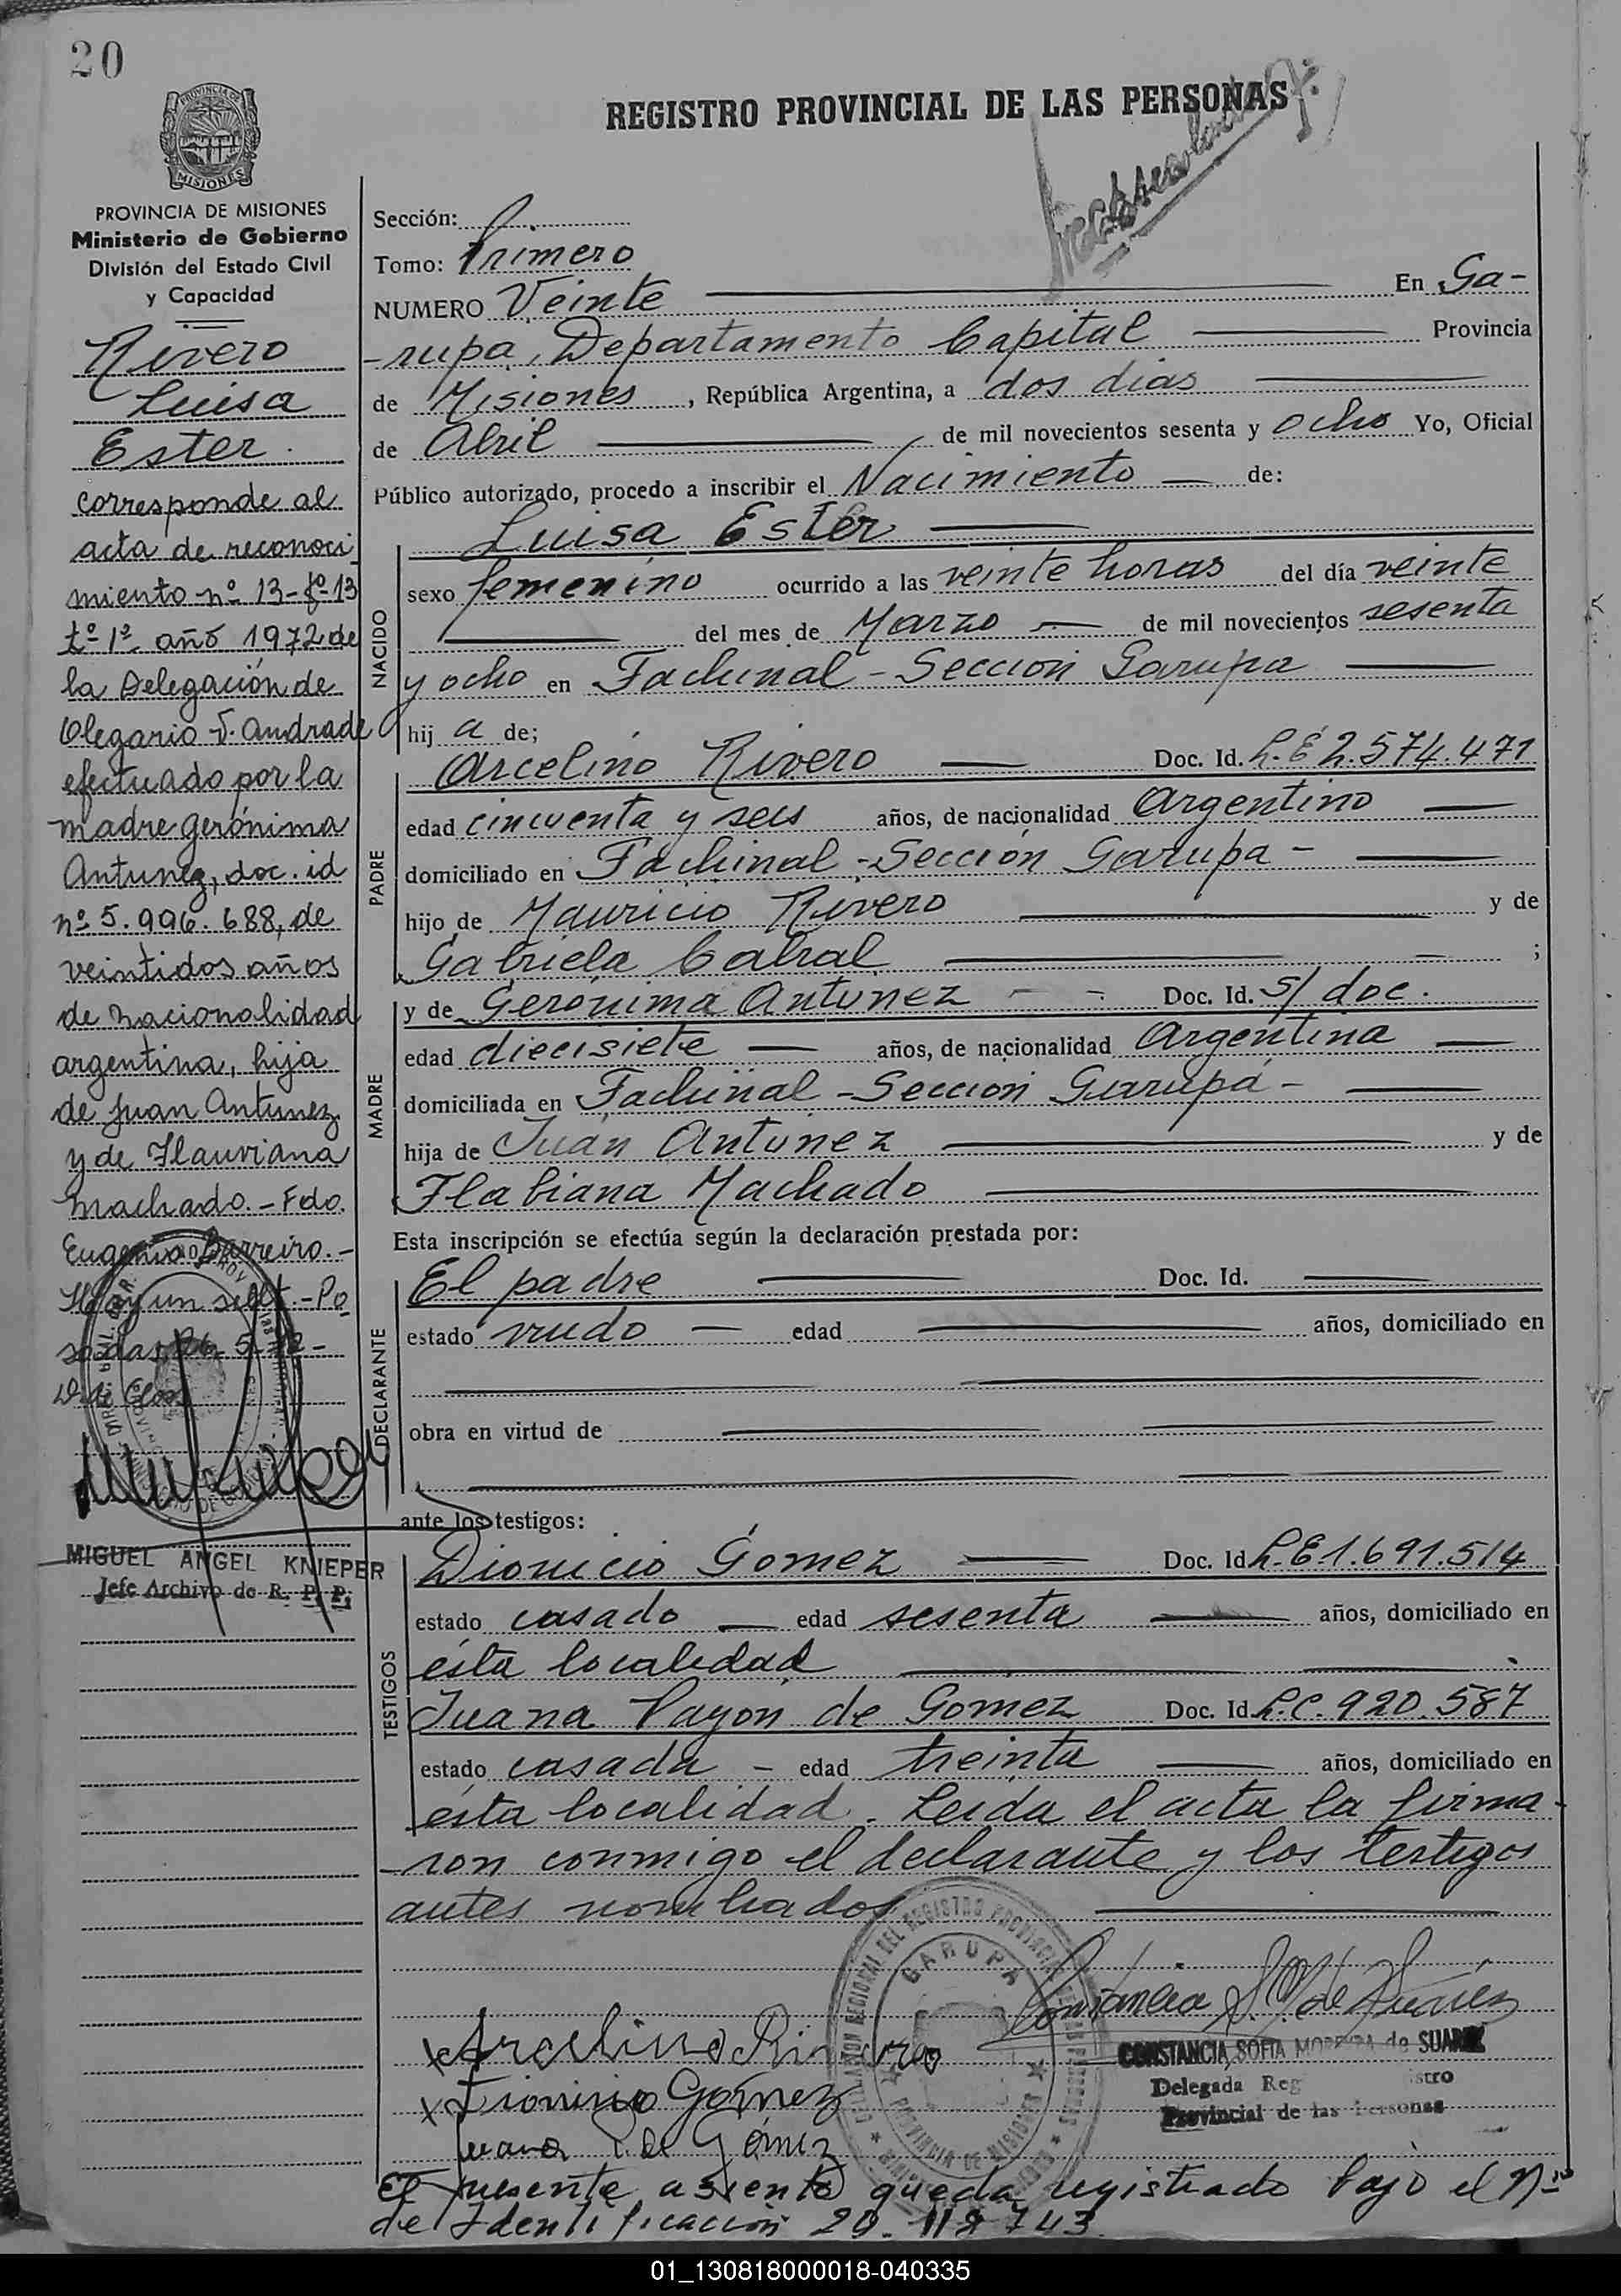 20
PROVINCIA DE MISIONES
MISIONES
PROVINCIA DE MISIONES
Ministerio de Gobierno
División del Estado Civil
y Capacidad
Rivero
Luisa
Ester.
corresponde al
acta de reconoci
miento nº 13-fº-13
tº 1º año 1972 de
la Delegación de
Olegario V. Andrade
efectuado por la
madre Gerónima
Antunez, doc. id
nº 5.996.688, de
veintidos años
de nacionalidad
argentina, hija
de Juan Antunez
y de Flauviana
Machado.- Fdo.
Eugenio Barreiro.-
Hay un sello.- Po
sadas,
MIGUEL ANGEL KNIEPER
Jefe Archivo de R. P. P.
REGISTRO PROVINCIAL DE LAS PERSONAS
Sección:
Tomo: Primero
NUMERO Veinte En Ga-
-rupa, Departamento Capital Provincia
de Misiones, República Argentina, a dos dias
de Abril de mil novecientos sesenta y ocho Yo, Oficial
Público autorizado, procedo a inscribir el Nacimiento de:
Luisa Ester
NACIDO
sexo femenino ocurrido a las veinte horas del día veinte
del mes de Marzo de mil novecientos sesenta
y ocho en Fachinal - Sección Garupa
hij a de;
PADRE
Arcelino Rivero Doc. Id. L.E 2.574.471
edad cincuenta y seis años, de nacionalidad Argentino
domiciliado en Fachinal - Sección Garupa -
hijo de Mauricio Rivero y de
Gabriela Cabral ;
MADRE
y de Gerónima Antunez Doc. Id. S/ doc.
edad diecisiete años, de nacionalidad Argentina
domiciliada en Fachinal - Sección Garupá -
hija de Juan Antunez y de
Flabiana Machado
Esta inscripción se efectúa según la declaración prestada por:
DECLARANTE
El padre Doc. Id.
estado viudo edad años, domiciliado en
obra en virtud de
ante los testigos:
TESTIGOS
Dionicio Gomez Doc. Id L.E 1.691.514
estado casado edad sesenta años, domiciliado en
ésta localidad
Juana Payon de Gomez Doc. Id L.C. 920.587
estado casada - edad treinta años, domiciliado en
ésta localidad. Leida el acta la firma-
-ron conmigo el declarante y los testigos
antes nombrados
GARUPA
PROVINCIA DE MISIONES
CONSTANCIA SOFIA MOREIRA de SUAREZ
Delegada Reg stro
Provincial de las Personas
x Arcelino Rivero
x Dionicio Gomez
Juana P. de Gómez
El presente asiento queda registrado bajo el Nº
de Identificación 20.112.743
01_130818000018-040335